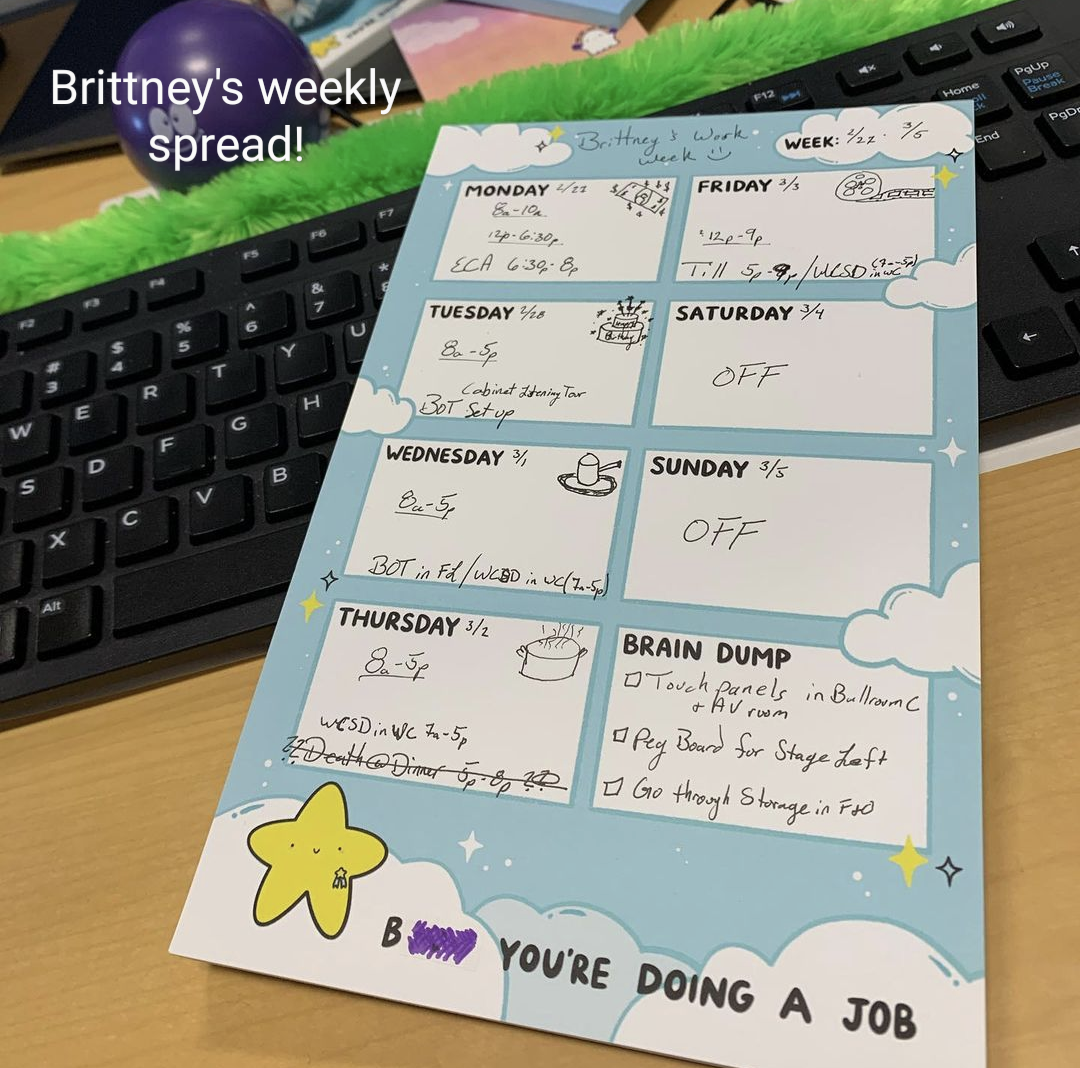 Brittney's weekly
spread!
Brittney's Work
week
WEEK: 2/27 - 3/5
MONDAY 2/27
8a-10a
12p-6:30p
ECA 6:30p-8p
TUESDAY 2/28
8a-5p
Cabinet Listening Tour
BOT Set up
WEDNESDAY 3/1
8a-5p
BOT in Fd/WCSD in WC(7a-5p)
THURSDAY 3/2
8a-5p
WCSD in WC 7a-5p
?? Death @ Dinner 5p-8p ??
FRIDAY 3/3
12p-9p
Till 5p-9p/WCSD (7a-5p)
in WC
SATURDAY 3/4
OFF
SUNDAY 3/5
OFF
BRAIN DUMP
Touch panels in Ballroom C
+ AV room
Peg Board for Stage Left
Go through Storage in
B
YOU'RE DOING A JOB
F2
F3
F4
F5
F6
F7
F12
Home
End
PgUp
Pause
Break
PgDn
# 3
$ 4
% 5
^ 6
& 7
*
W
E
R
T
Y
U
S
D
F
G
H
X
C
V
B
Alt